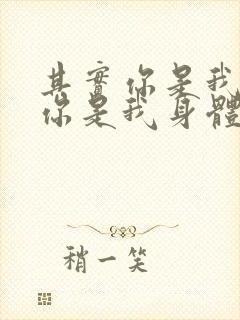 其實你是我
你是我身體
稍一笑